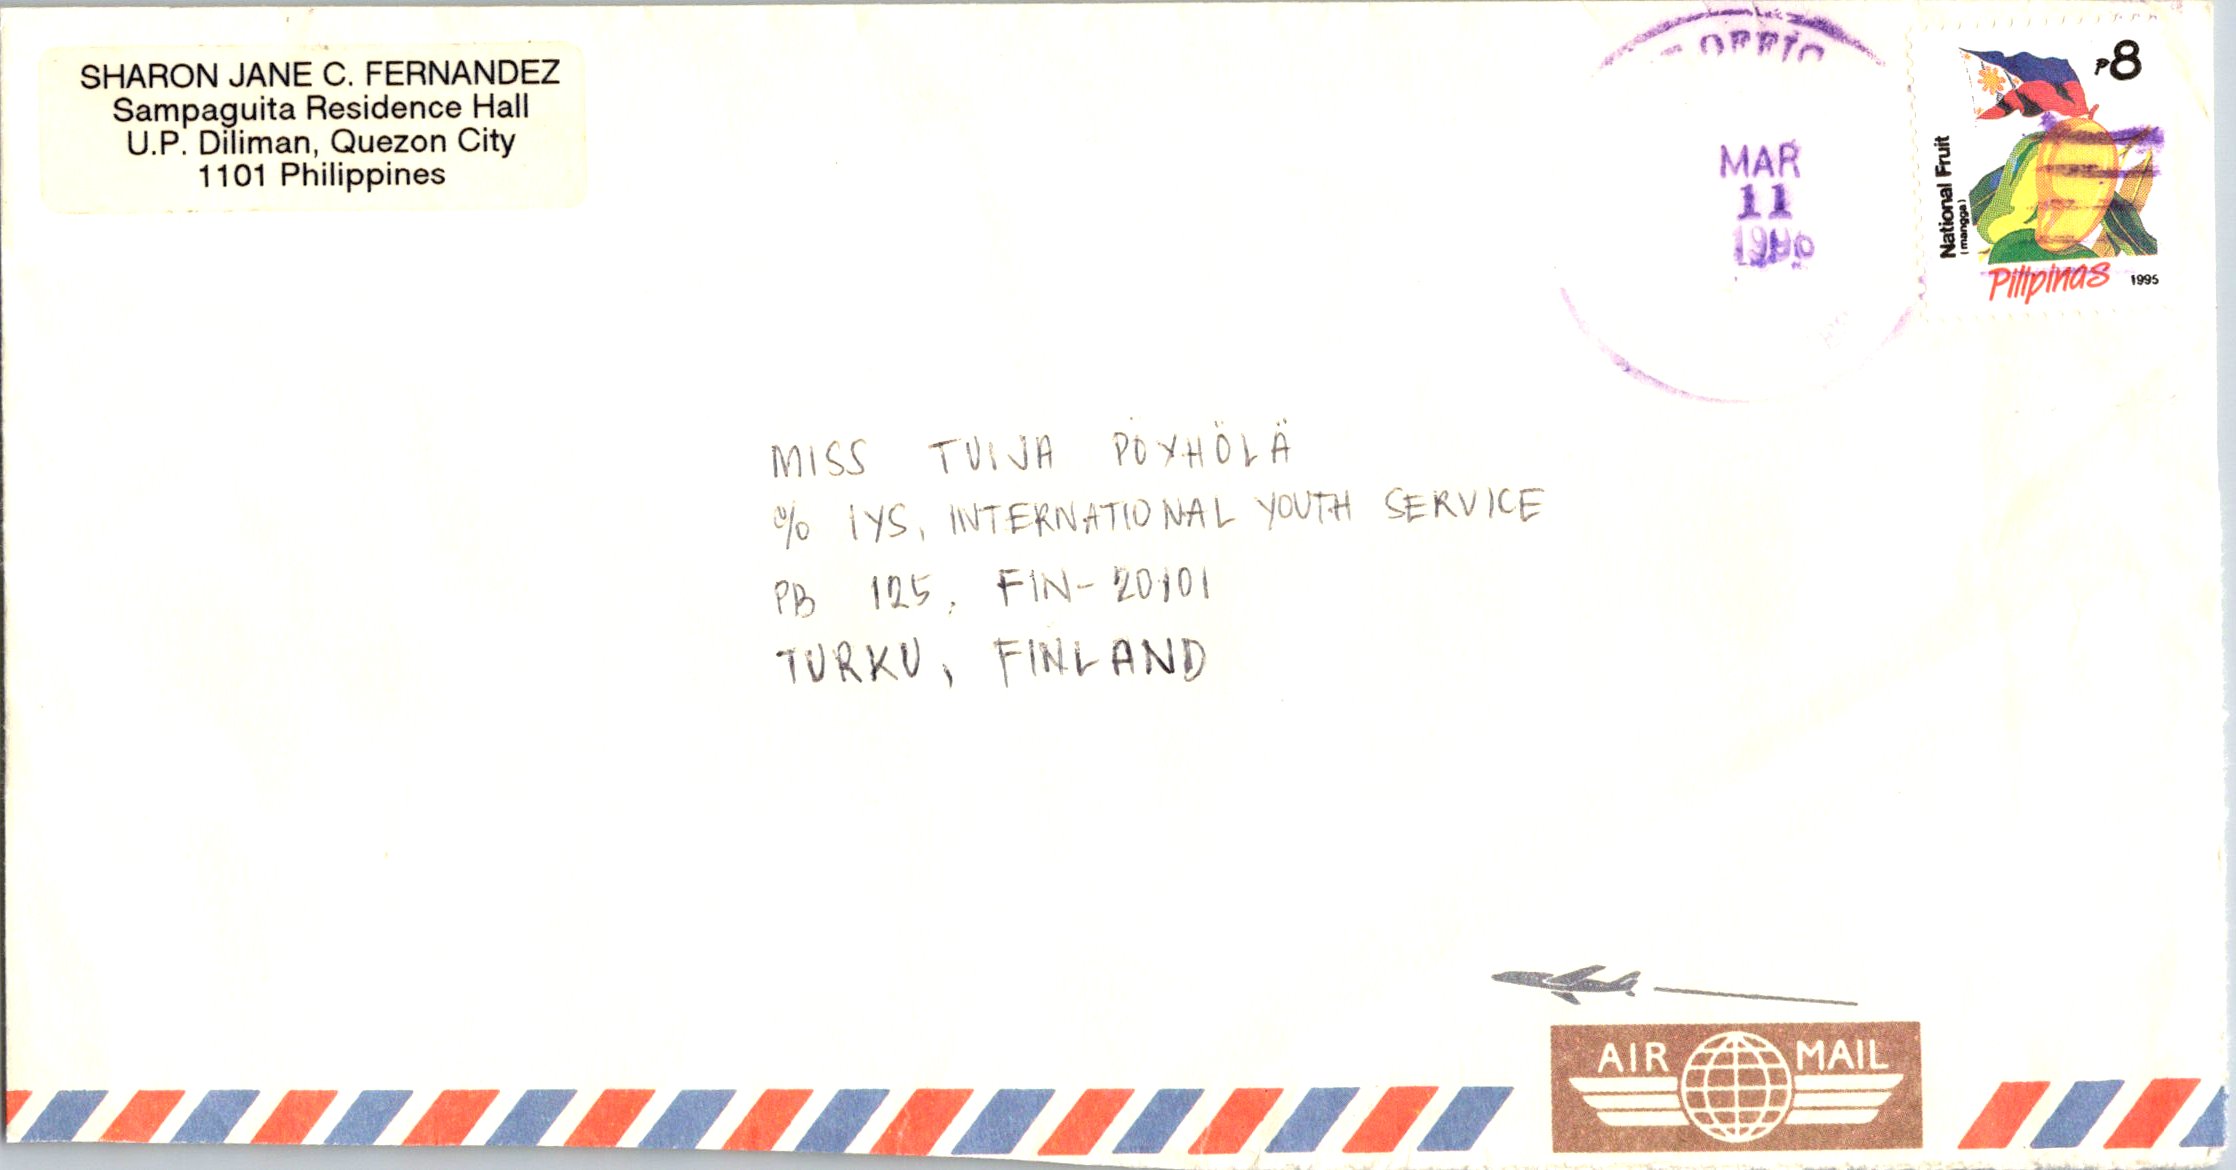 SHARON JANE C. FERNANDEZ
Sampaguita Residence Hall
U.P. Diliman, Quezon City
1101 Philippines
MAR
11
₱8
National Fruit
(mangga)
Pilipinas 1995
MISS TUIJA PÖYHÖLÄ
c/o IYS, INTERNATIONAL YOUTH SERVICE
PB 125, FIN-20101
TURKU, FINLAND
AIR MAIL